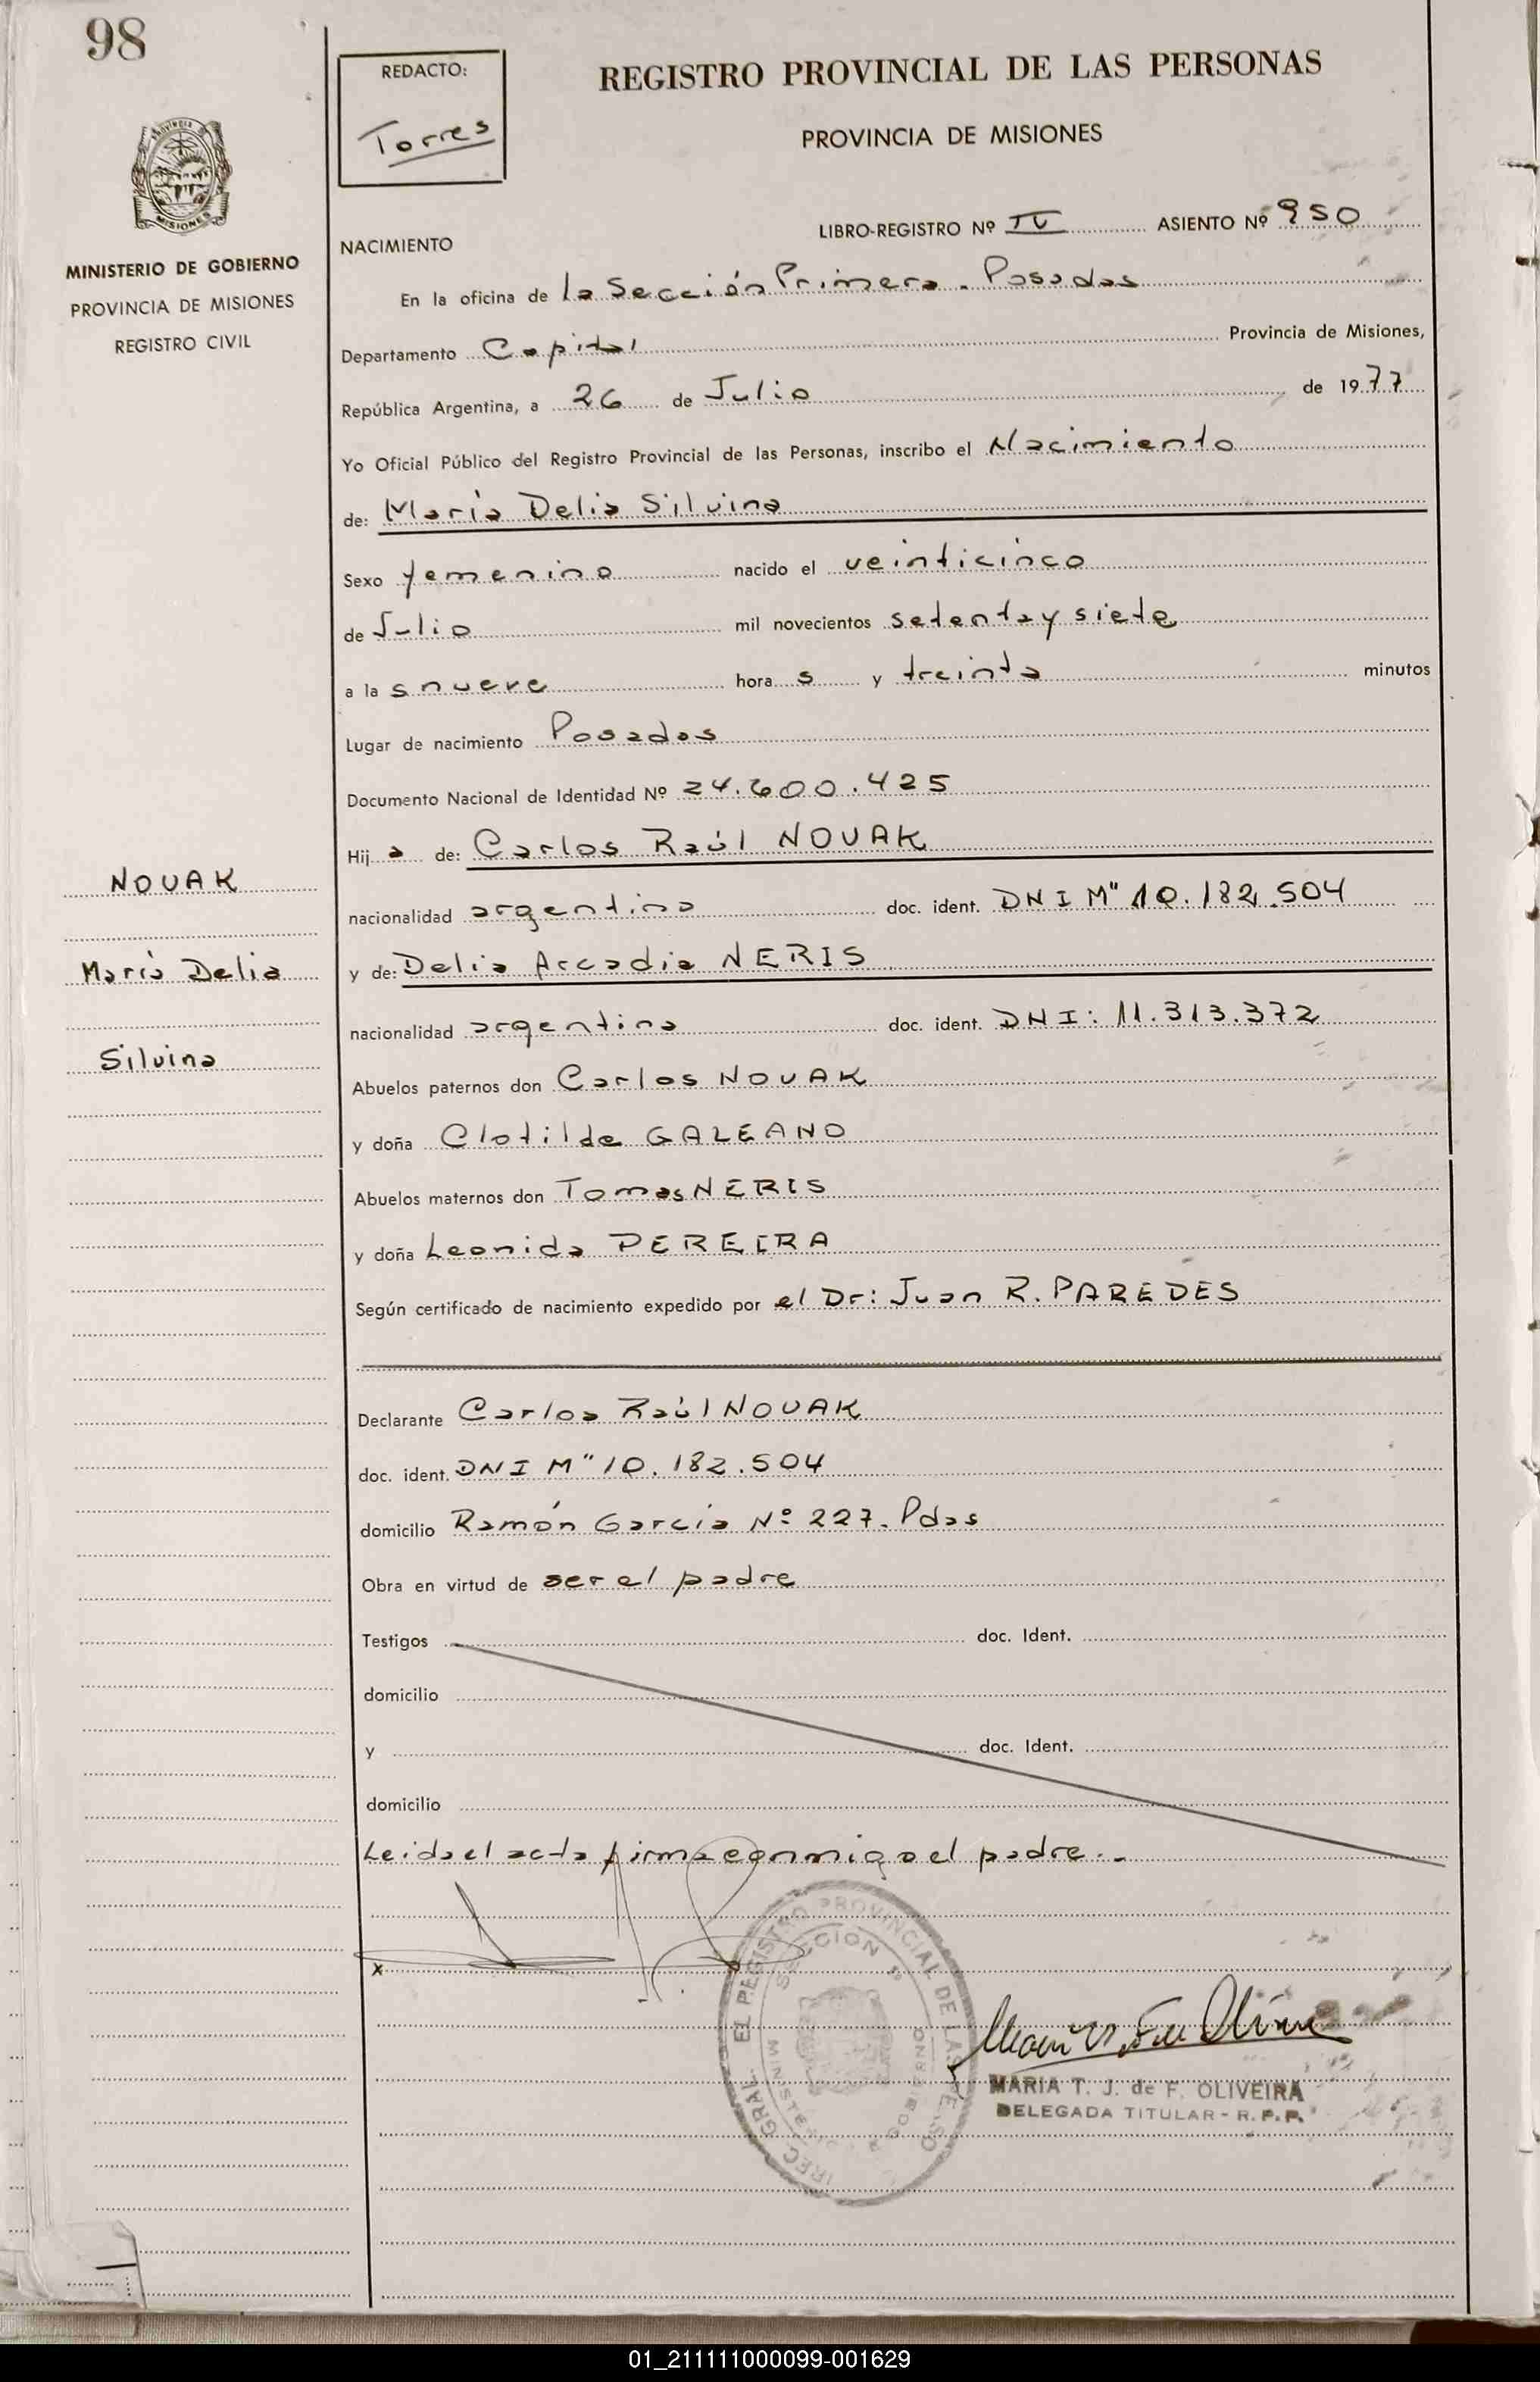 98
REDACTO:
Torres
REGISTRO PROVINCIAL DE LAS PERSONAS
PROVINCIA DE MISIONES
MISIONES
MINISTERIO DE GOBIERNO
PROVINCIA DE MISIONES
REGISTRO CIVIL
NACIMIENTO
LIBRO-REGISTRO Nº IV ASIENTO Nº 950
En la oficina de la Sección Primera. Posadas
Departamento Capital Provincia de Misiones,
República Argentina, a 26 de Julio de 1977
Yo Oficial Público del Registro Provincial de las Personas, inscribo el Nacimiento
de: María Delia Silvina
Sexo femenino nacido el veinticinco
de Julio mil novecientos setenta y siete
a la s nueve hora s y treinta minutos
Lugar de nacimiento Posadas
Documento Nacional de Identidad Nº 24.600.425
Hij a de: Carlos Raúl NOVAK
nacionalidad argentina doc. ident. DNI M" 10.182.504
y de: Delia Arcadia NERIS
nacionalidad argentina doc. ident. DNI: 11.313.372
Abuelos paternos don Carlos NOVAK
y doña Clotilde GALEANO
Abuelos maternos don Tomas NERIS
y doña Leonida PEREIRA
Según certificado de nacimiento expedido por el Dr: Juan R. PAREDES
NOVAK
María Delia
Silvina
Declarante Carlos Raúl NOVAK
doc. ident. DNI M" 10.182.504
domicilio Ramón García Nº 227. Pdas
Obra en virtud de ser el padre
Testigos doc. Ident.
domicilio
y doc. Ident.
domicilio
Leida el acta firma conmigo el padre.-
x
EL REGISTRO PROVINCIAL DE LAS PERSO
IREC. GRAL.
SECCION
MINISTERIO DE GOBIERNO
MARIA T. J. de F. OLIVEIRA
DELEGADA TITULAR - R. P. P.
01_211111000099-001629